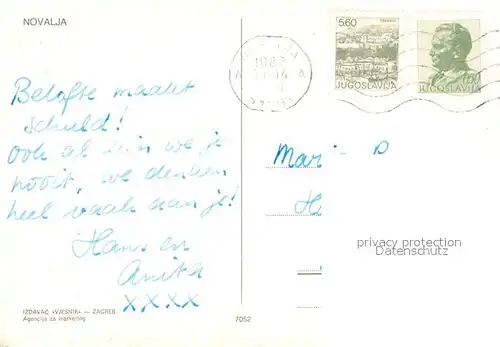 NOVALJA
5.60
JUGOSLAVIJA
JUGOSLAVIJA
Belofte maakt
schuld!
Ook al zien we je
nooit, we denken
heel vaak aan je!
Hans en
Anita
XXXX
Mari - D
H
privacy protection
Datenschutz
IZDAVAČ »VJESNIK« — ZAGREB
Agencija za marketing
7052